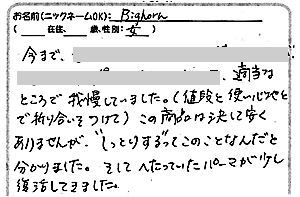 お名前(ニックネームOK): Bighorn
( 在住、 歳、性別: 女 )
今まで、
適当な
ところで我慢していました。(値段と使い心地と
で折り合いをつけて) この商品は決して安く
ありませんが、"しっとりする"ってこのことなんだと
分かりました。そしてへたっていたパーマが少し
復活してきました。